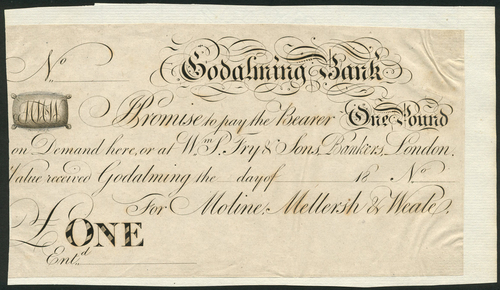 No
Godalming Bank
I Promise to pay the Bearer One Pound
on Demand here, or at Wm. S. Fry & Sons, Bankers, London.
Value received Godalming the day of 18 No
For Moline, Mellersh & Weale,
£ ONE
Entd.